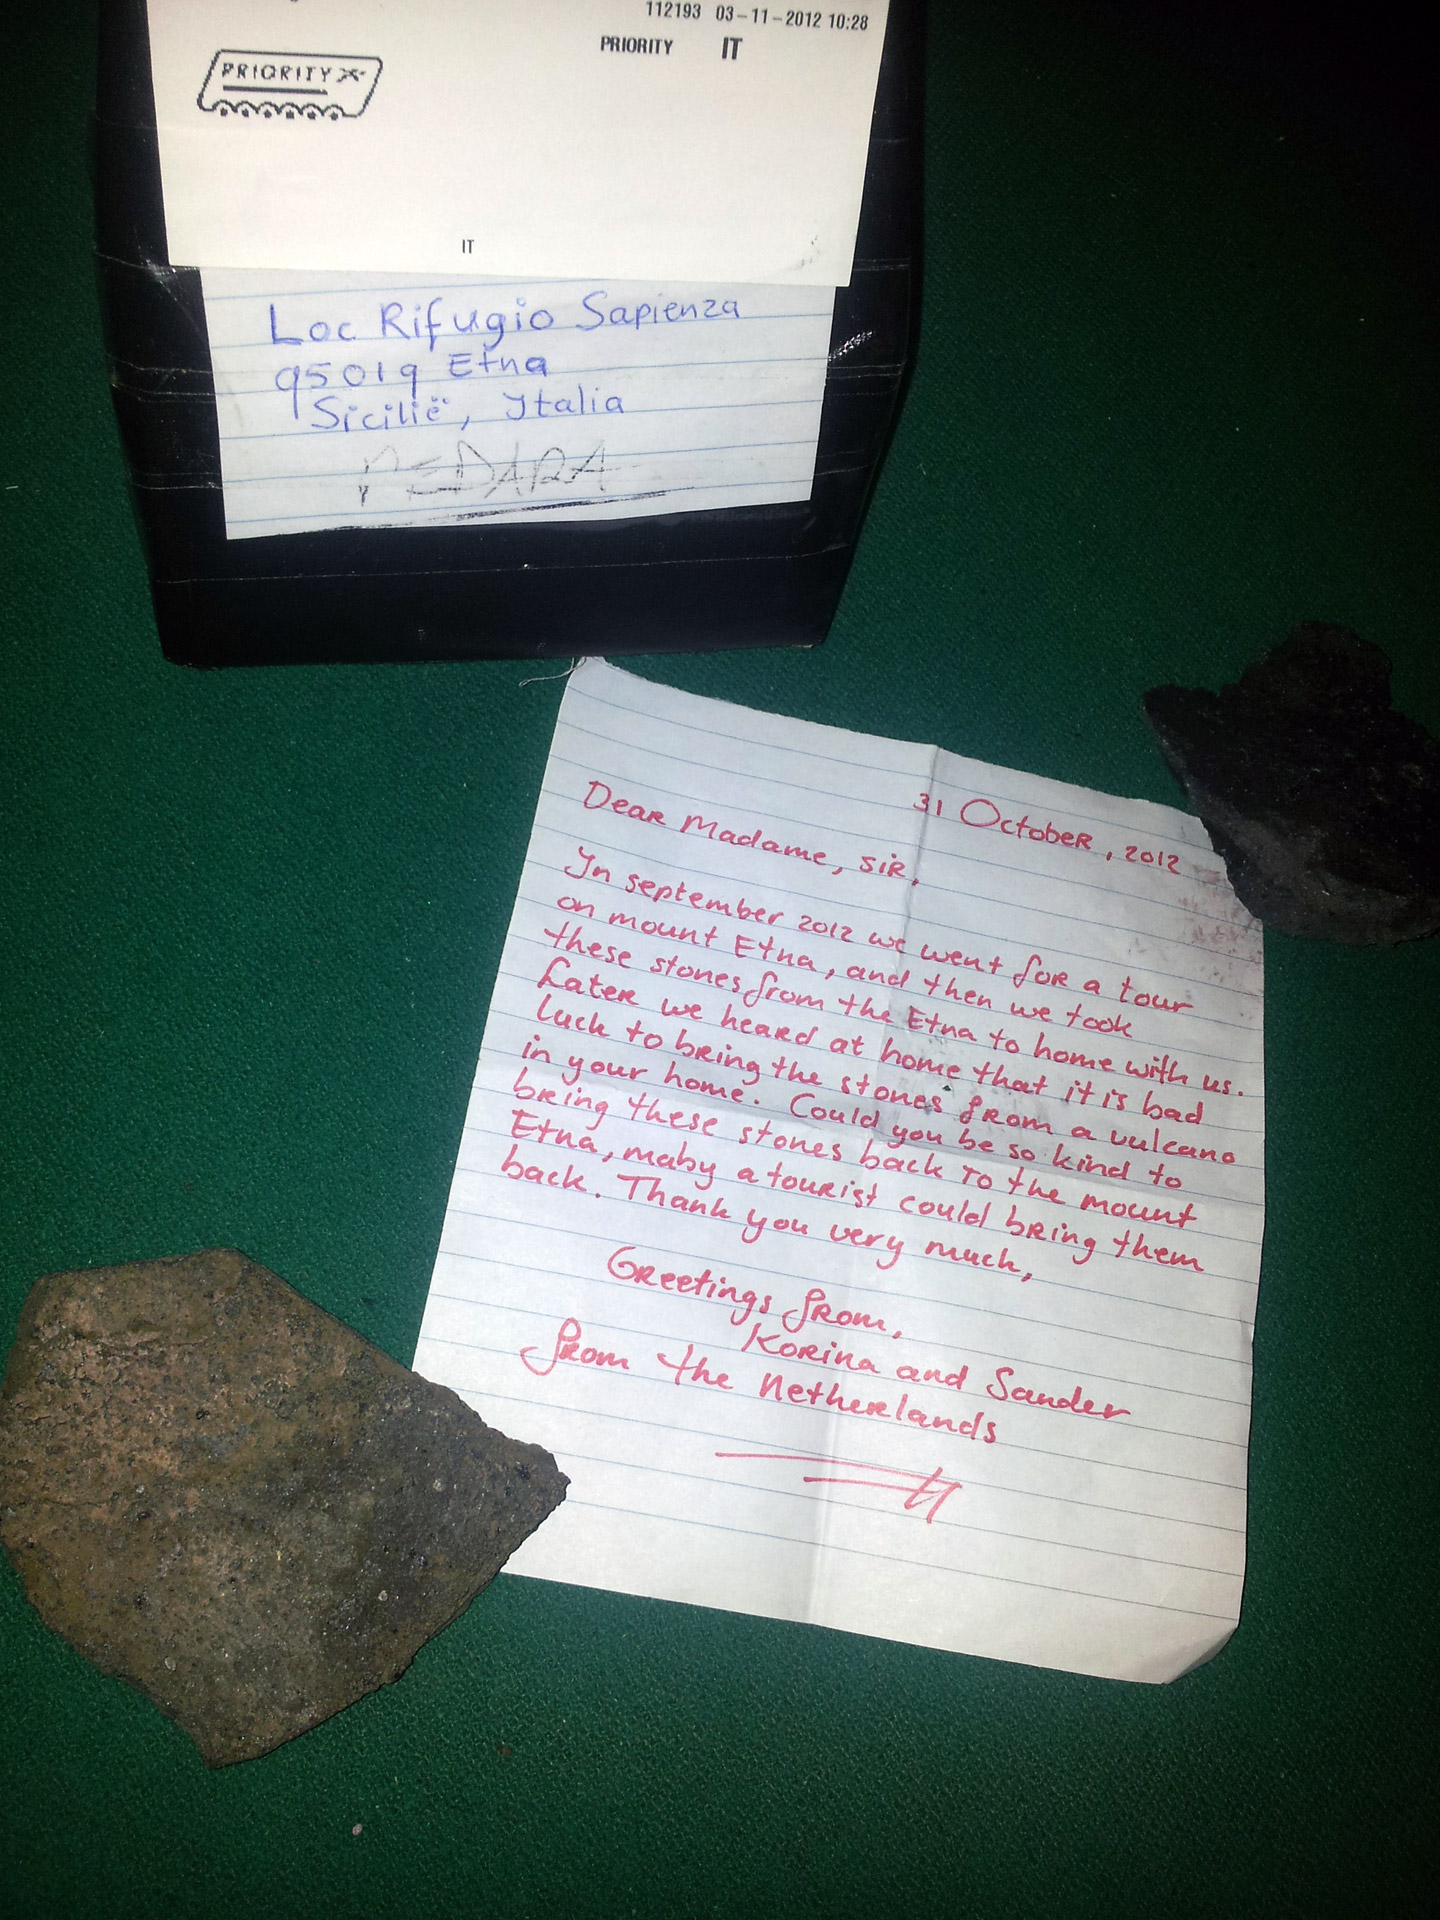 112193 03-11-2012 10:28
PRIORITY IT
PRIORITY
IT
Loc Rifugio Sapienza
95019 Etna
Sicilië, Italia
PEDARA
31 October, 2012
Dear Madame, sir,
In september 2012 we went for a tour
on mount Etna, and then we took
these stones from the Etna to home with us.
Later we heard at home that it is bad
luck to bring the stones from a vulcano
in your home. Could you be so kind to
bring these stones back to the mount
Etna, maby a tourist could bring them
back. Thank you very much,
Greetings from,
Korina and Sander
from the Netherlands